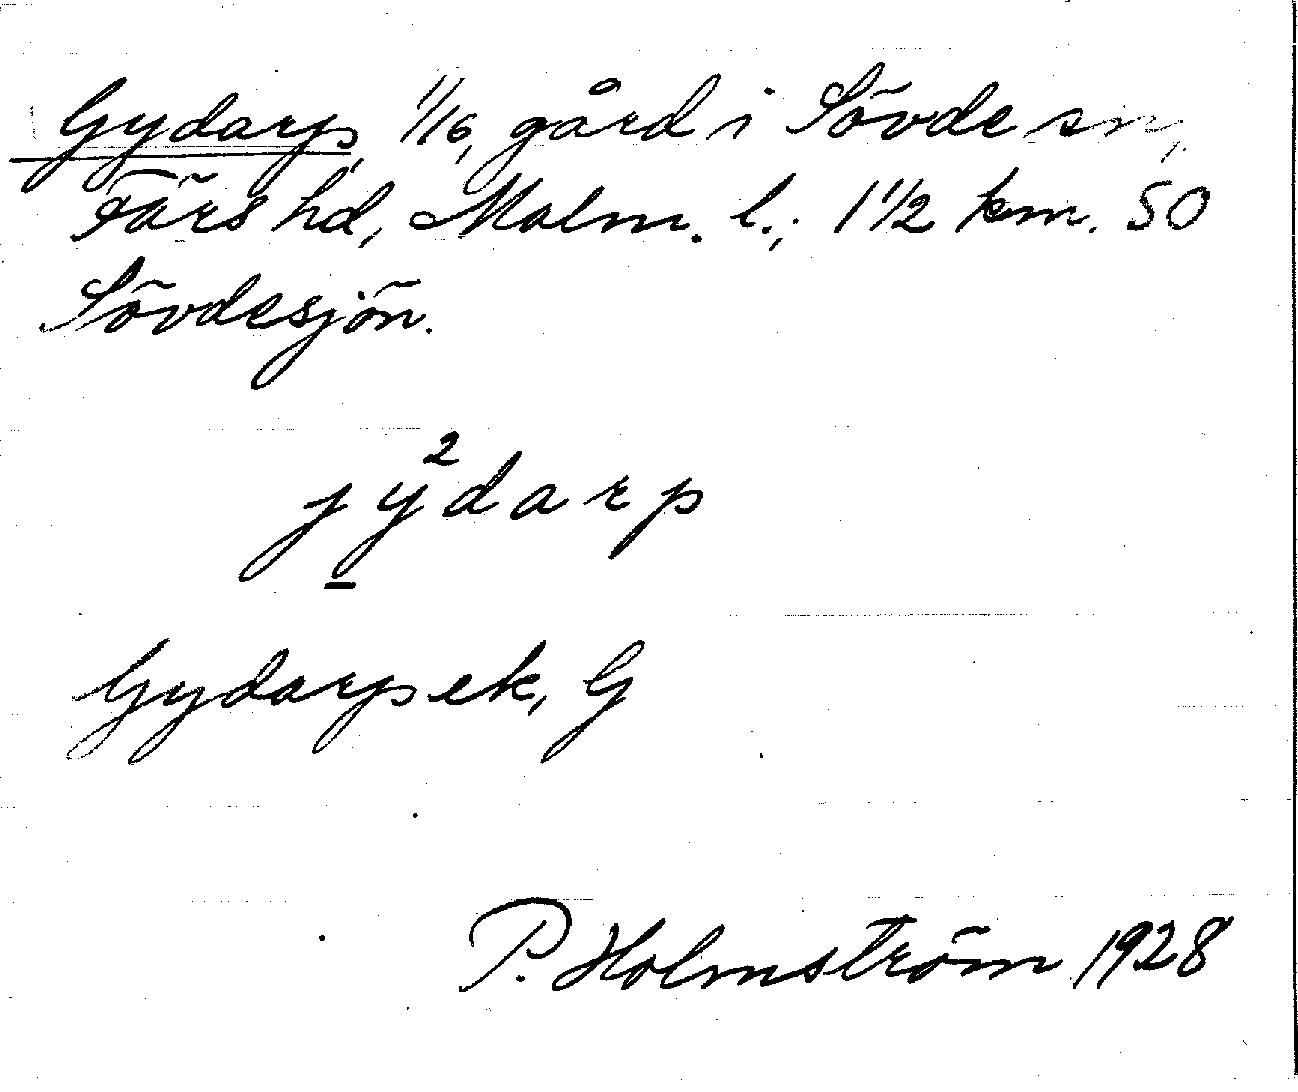 Gydarp, 1/16, gård i Sövde sn,
Färs hd, Malm. l.; 1 1/2 km. SO
Sövdesjön.
jy²darp
Gydarpsek, G
P. Holmström 1928